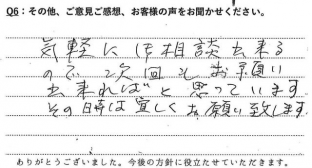 Q6：その他、ご意見ご感想、お客様の声をお聞かせください。
気軽にご相談出来る
ので次回もお願い
出来ればと思っています
その時は宜しくお願い致します
ありがとうございました。今後の方針に役立たせていただきます。